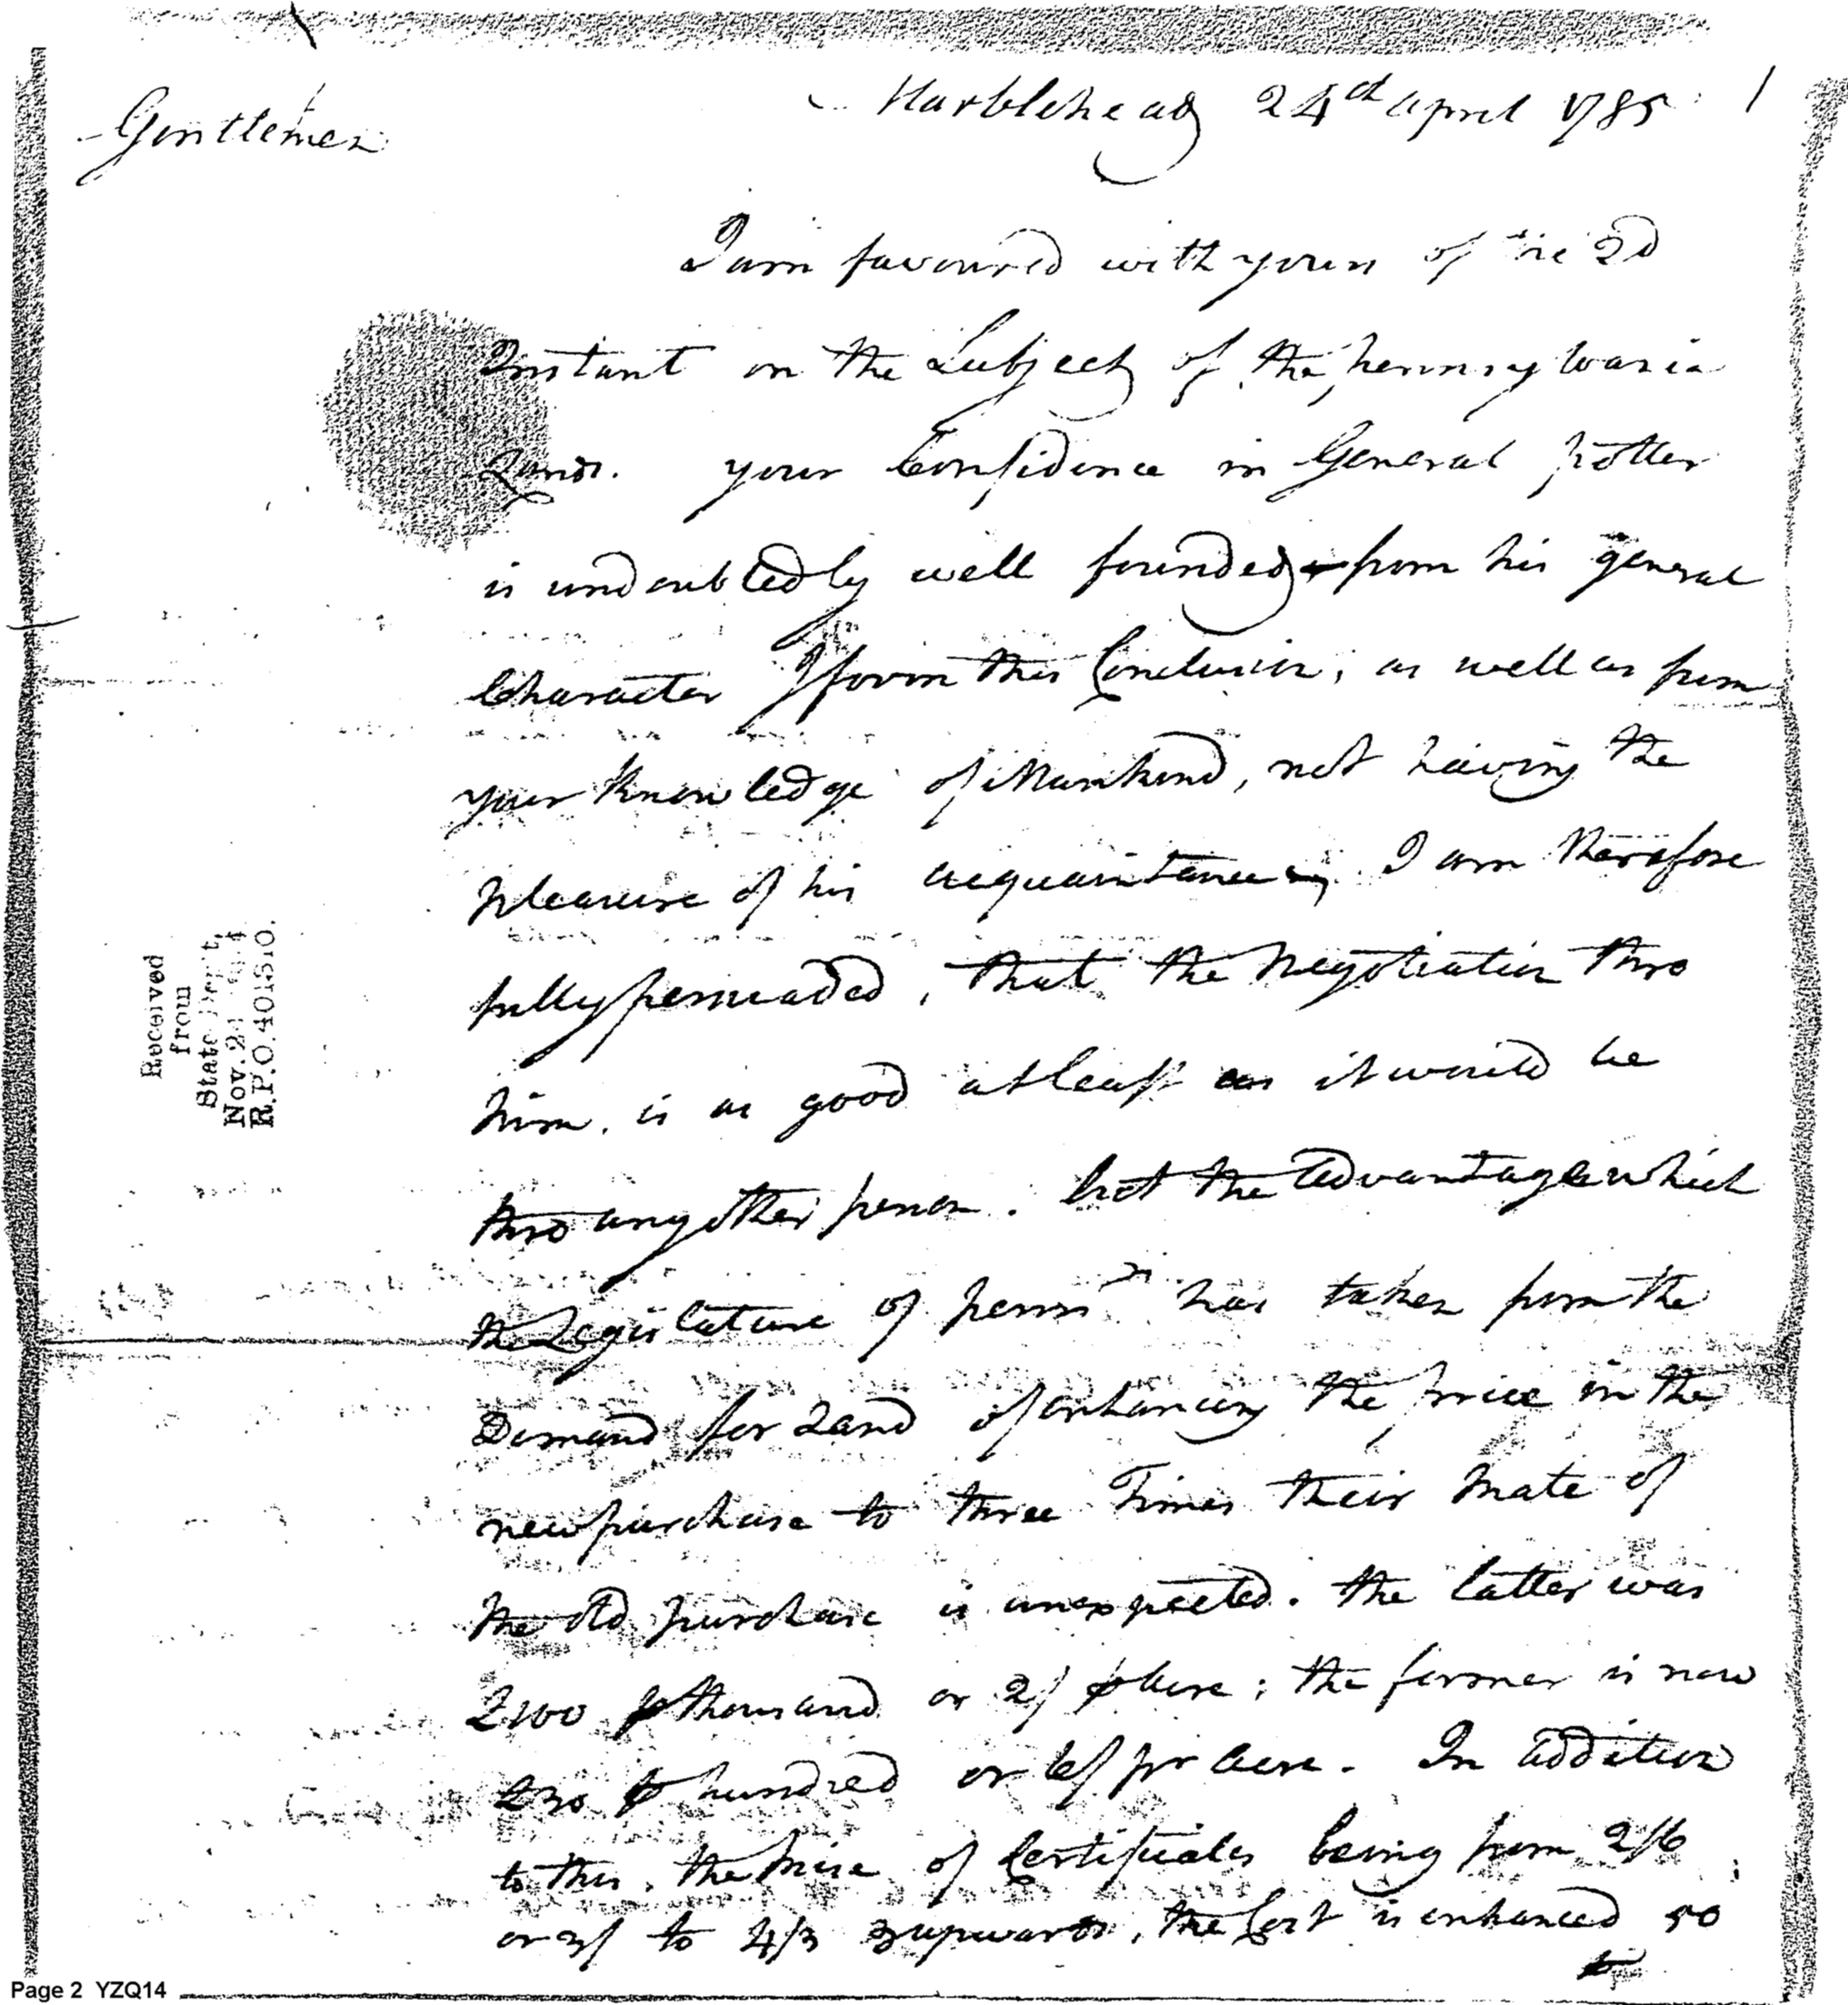 Marblehead 24th april 1785
1
Gentlemen
I am favoured with yours of the 2d
Instant on the Subject of the pennsylvania
Lands. your Confidence in General potter
is undoubtedly well founded from his general
Character I form this Conclusion, as well as from
your Knowledge of Mankind, not having the
pleasure of his acquaintance. I am therefore
fully persuaded, that the Negotiation thro
him, is as good at least as it would be
thro any other person. but the advantage which
the Legislature of penns has taken from the
Demand for Land of enhancing the price in the
new purchase to three Times their Rate of
the old purchase is unexpected. the latter was
£100 ⅌ thousand or 2/ ⅌ Acre; the former is now
£30 ⅌ hundred or 6/ pr Acre. In addition
to this, the Price of Certificates being from 2/6
or 3/ to 4/3 & upwards, the Cost is enhanced 50
to
Received
from
State Dep't,
Nov. 21
R.P.O. 401S.O.
Page 2 YZQ14